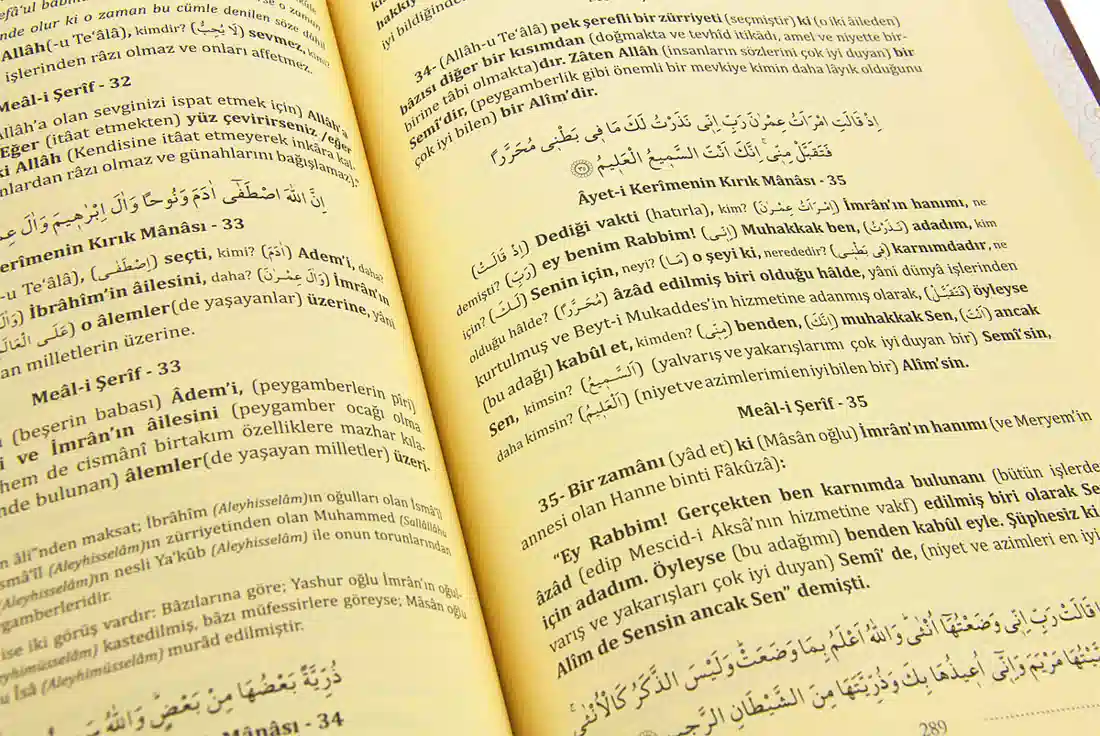 nde olur ki o zaman bu cümle denilen söze dâhil
Allâh(-u Te‘âlâ), kimdir? (لَا يُحِبُّ) sevmez,
işlerinden râzı olmaz ve onları affetmez.
Meâl-i Şerîf - 32
Allâh’a olan sevginizi ispat etmek için) Allâh’a
Eğer (itâat etmekten) yüz çevirirseniz /eğer
ki Allâh (Kendisine itâat etmeyerek inkâra
nlardan râzı olmaz ve günahlarını bağışlamaz).”
اِنَّ اللّٰهَ اصْطَفٰٓى اٰدَمَ وَنُوحًا وَاٰلَ اِبْرٰه۪يمَ وَاٰلَ
erîmenin Kırık Mânâsı - 33
-u Te‘âlâ), (اِصْطَفٰى) seçti, kimi? (اٰدَمَ) Adem’i, daha?
(وَاٰلَ) İbrâhîm’in âilesini, daha? (وَاٰلَ عِمْرٰنَ) İmrân’ın
o âlemler(de yaşayanlar) üzerine, yâni
an milletlerin üzerine.
Meâl-i Şerîf - 33
(beşerin babası) Âdem’i, (peygamberlerin pîri)
i ve İmrân’ın âilesini (peygamber ocağı olma
hem de cismânî birtakım özelliklere mazhar kıla-
nde bulunan) âlemler(de yaşayan milletler) üzeri-
n âli”nden maksat; İbrâhîm (Aleyhisselâm)ın oğulları olan İsmâ‘îl
smâ‘îl (Aleyhisselâm)ın zürriyetinden olan Muhammed (Sallâllâhu
(Aleyhisselâm)ın nesli Ya‘kûb (Aleyhisselâm) ile onun torunlarından
ygamberleridir.
ise iki görüş vardır: Bâzılarına göre; Yashur oğlu İmrân’ın oğul-
eyhimüsselâm) kastedilmiş, bâzı müfessirlere göreyse; Mâsân oğlu
u Îsâ (Aleyhimüsselâm) murâd edilmiştir.
ذُرِّيَّةً بَعْضُهَا مِنْ بَعْضٍ وَاللّٰهُ
Mânâsı - 34
hakkıy
iyi bildiğinden
34- (Allâh-u Te‘âlâ) pek şerefli bir zürriyeti (seçmiştir) ki (o iki âileden)
bâzısı diğer bir kısımdan (doğmakta ve tevhîd itikâdı, amel ve niyette bir-
birine tâbi olmakta)dır. Zâten Allâh (insanların sözlerini çok iyi duyan) bir
Semî‘dir, (peygamberlik gibi önemli bir mevkiye kimin daha lâyık olduğunu
çok iyi bilen) bir Alîm’dir.
اِذْ قَالَتِ امْرَاَتُ عِمْرٰنَ رَبِّ اِنّ۪ى نَذَرْتُ لَكَ مَا ف۪ى بَطْن۪ى مُحَرَّرًا
فَتَقَبَّلْ مِنّ۪ىۚ اِنَّكَ اَنْتَ السَّم۪يعُ الْعَل۪يمُ ﴿٣٥﴾
Âyet-i Kerîmenin Kırık Mânâsı - 35
(اِذْ قَالَتْ) Dediği vakti (hatırla), kim? (اِمْرَاَتُ عِمْرٰنَ) İmrân’ın hanımı, ne
demişti? (رَبِّ) ey benim Rabbim! (اِنّ۪ى) Muhakkak ben, (نَذَرْتُ) adadım, kim
için? (لَكَ) Senin için, neyi? (مَا) o şeyi ki, nerededir? (ف۪ى بَطْن۪ى) karnımdadır, ne
olduğu hâlde? (مُحَرَّرًا) âzâd edilmiş biri olduğu hâlde, yâni dünyâ işlerinden
kurtulmuş ve Beyt-i Mukaddes’in hizmetine adanmış olarak, (فَتَقَبَّلْ) öyleyse
(bu adağı) kabûl et, kimden? (مِنّ۪ى) benden, (اِنَّكَ) muhakkak Sen, (اَنْتَ) ancak
Sen, kimsin? (اَلسَّم۪يعُ) (yalvarış ve yakarışlarımı çok iyi duyan bir) Semî‘sin,
daha kimsin? (اَلْعَل۪يمُ) (niyet ve azimlerimi en iyi bilen bir) Alîm’sin.
Meâl-i Şerîf - 35
35- Bir zamânı (yâd et) ki (Mâsân oğlu) İmrân’ın hanımı (ve Meryem’in
annesi olan Hanne binti Fâkûzâ):
“Ey Rabbim! Gerçekten ben karnımda bulunanı (bütün işlerde
âzâd (edip Mescid-i Aksâ’nın hizmetine vakf) edilmiş biri olarak Se
için adadım. Öyleyse (bu adağımı) benden kabûl eyle. Şüphesiz ki
varış ve yakarışları çok iyi duyan) Semî‘ de, (niyet ve azimleri en iyi
Alîm de Sensin ancak Sen” demişti.
قَالَتْ رَبِّ اِنّ۪ى وَضَعْتُهَٓا اُنْثٰىۜ وَاللّٰهُ اَعْلَمُ بِمَا وَضَعَتْۜ وَلَيْسَ الذَّكَرُ كَالْاُنْثٰىۚ
مَرْيَمَ وَاِنّ۪ٓى اُع۪يذُهَا بِكَ وَذُرِّيَّتَهَا مِنَ الشَّيْطَانِ الرَّج۪يمِ
289